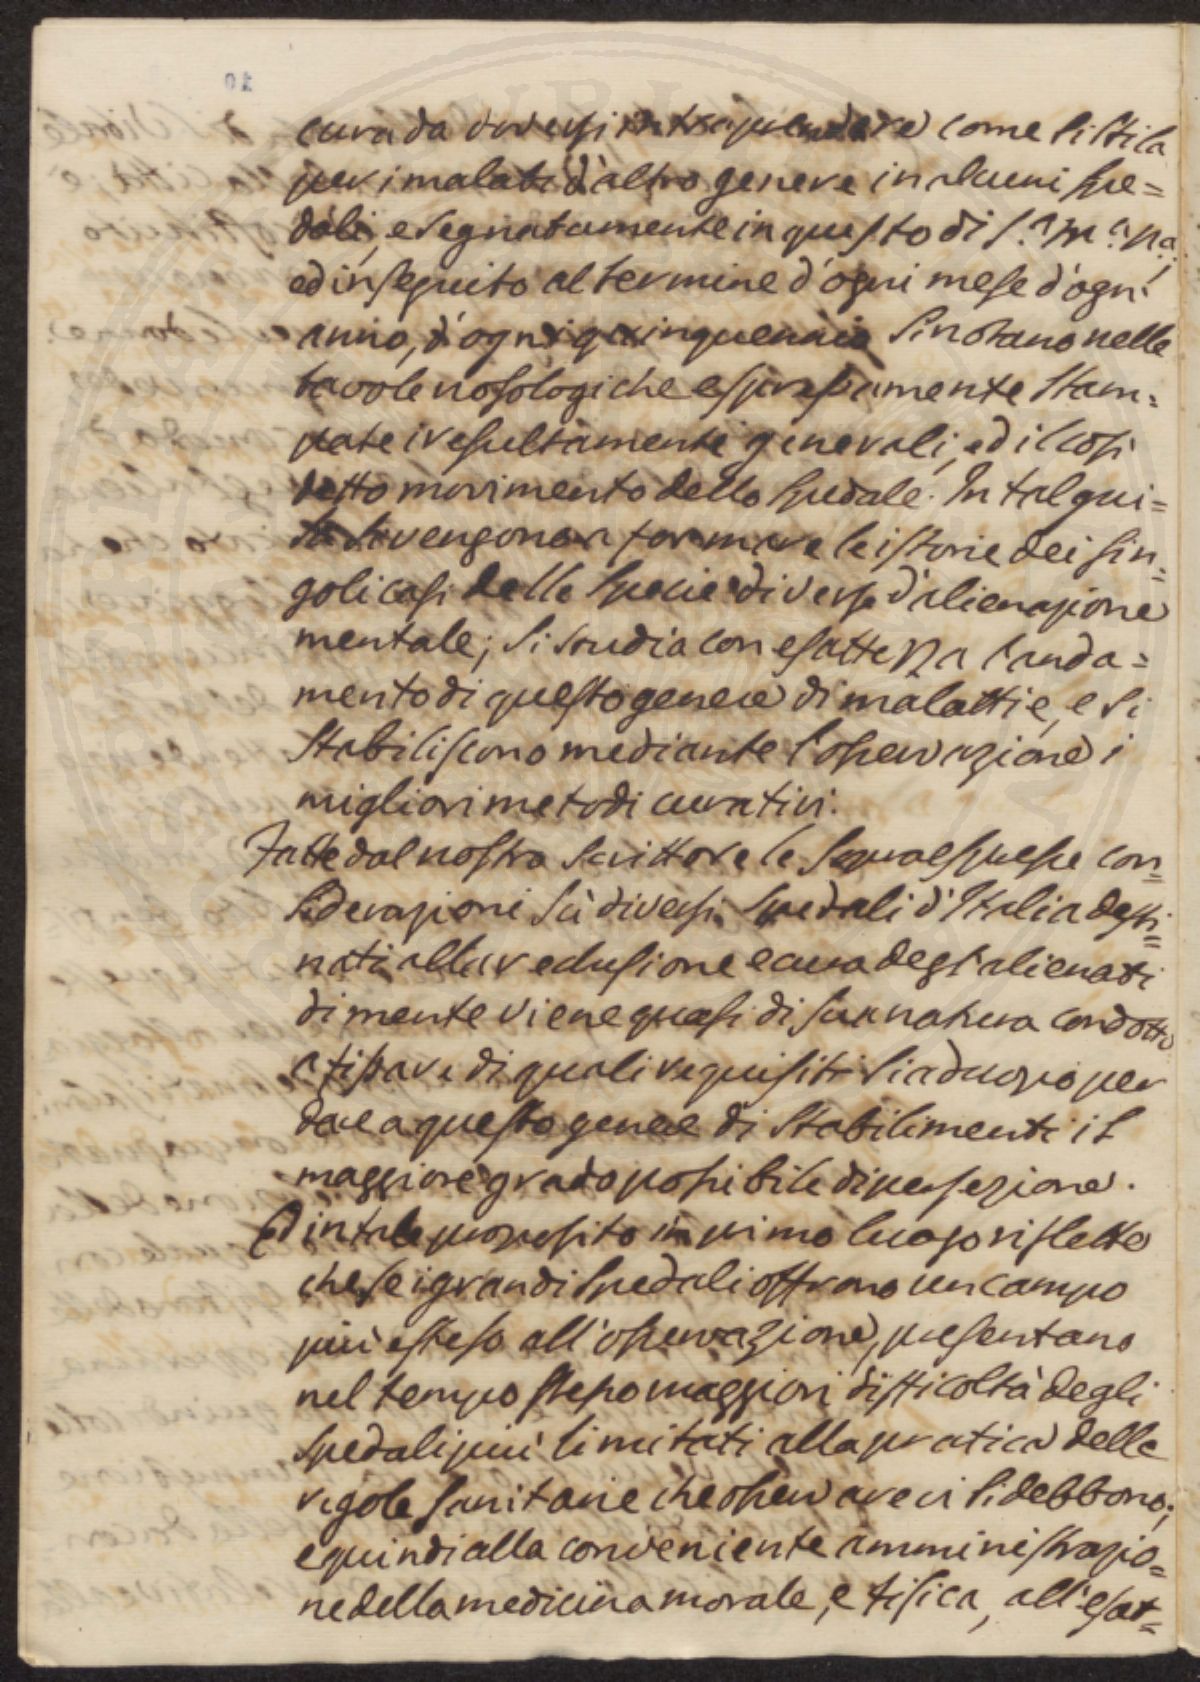 cura da doversi intraprendere come si stila
per i malati d'altro genere in alcuni spe=
dali, e segnatamente in questo di S.a M.a N.a,
ed in seguito al termine d'ogni mese d'ogni
anno, d'ogni quinquennio si notano nelle
tavole nosologiche espressamente stam=
pate i resultamenti generali, ed il così
detto movimento dello spedale. In tal gui=
sa si vengono a formare le istorie dei sin=
goli casi delle specie diverse d'alienazione
mentale; si studia con esattezza l'anda=
mento di questo genere di malattie, e si
stabiliscono mediante l'osservazione i
migliori metodi curativi.
Fatte dal nostro scrittore le sopraespresse con=
siderazioni sù diversi spedali d'Italia desti=
nati alla reclusione e cura degl'alienati
di mente viene quasi di sua natura condotto
a fissare di quali requisiti sia d'uopo per
dare a questo genere di stabilimenti il
maggiore grado possibile di perfezione.
Ed in tale proposito in primo luogo riflette
che se i grandi spedali offrono un campo
più esteso all'osservazione, presentano
nel tempo stesso maggiori difficoltà degli
spedali più limitati alla pratica delle
regole sanitarie che osservare vi si debbono;
e quindi alla conveniente amministrazio=
ne della medicina morale, e fisica, all'esat=